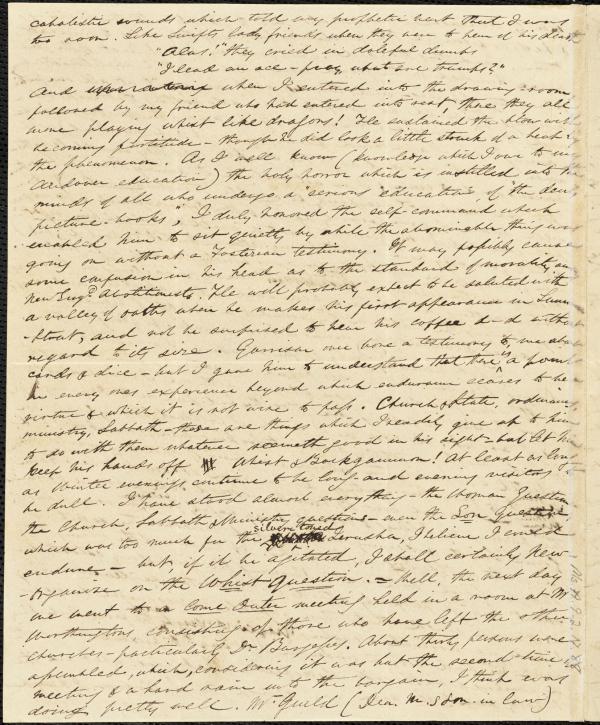 cabalistic sounds which told my prophetic heart that I was
too soon. Like Swift's lady friends when they were to hear of his death
"Alas!" they cried in doleful dumps
"I lead an ace - pray what are trumps?"
And when I entered into the drawing-room
followed by my friend who had entered into rest there they all
were playing whist like dragons! He sustained the blow with
becoming fortitude - though he did look a little struck of a heap at
the phenomenon. As I well know (knowledge which I owe to my
Andover education) the holy horror which is instilled into the
minds of all who undergo a "serious" education, of the devil's
picture-books, I duly honored the self-command which
enabled him to sit quietly by while the abominable thing was
going on without a Fosterian testimony. It may possibly cause
some confusion in his head as to the standard of morality in
New Engd Abolitionists. He will probably expect to be saluted with
a volley of oaths when he makes his first appearance in
and not be surprised to hear his coffee d-d without
regard to its size. Garrison once bore a testimony to me about
cards & dice - but I gave him to understand that there is a point
in every ones experience beyond which endurance ceases to be a
virtue & which it is not wise to pass. Church & State, ordinances,
ministry, Sabbath - these are things which I readily give up to him
to do with them whatever seemeth good in his sight - but let him
keep his hands off Whist & Backgammon! At least as long
as Winter evenings continue to be long and evening visitors
be dull. I have stood almost everything - the Woman Question
the Church, Sabbath & Ministry questions - even the
which was too much for the silver toned Jerusha, I believe I could
endure - but, if it be agitated, I shall certainly new-
-organise on the Whist Question. - Well, the next day
we went to a Come Outer meeting held in a room at Mr
Worthington's, consisting of those who have left the other
churches - particularly Dr Burgess's. About thirty persons were
assembled, which, considering it was but the second time of
meeting & a hard rain into the bargain, I think was
doing pretty well. Mr Guild (Dea. M.'s son-in-law)